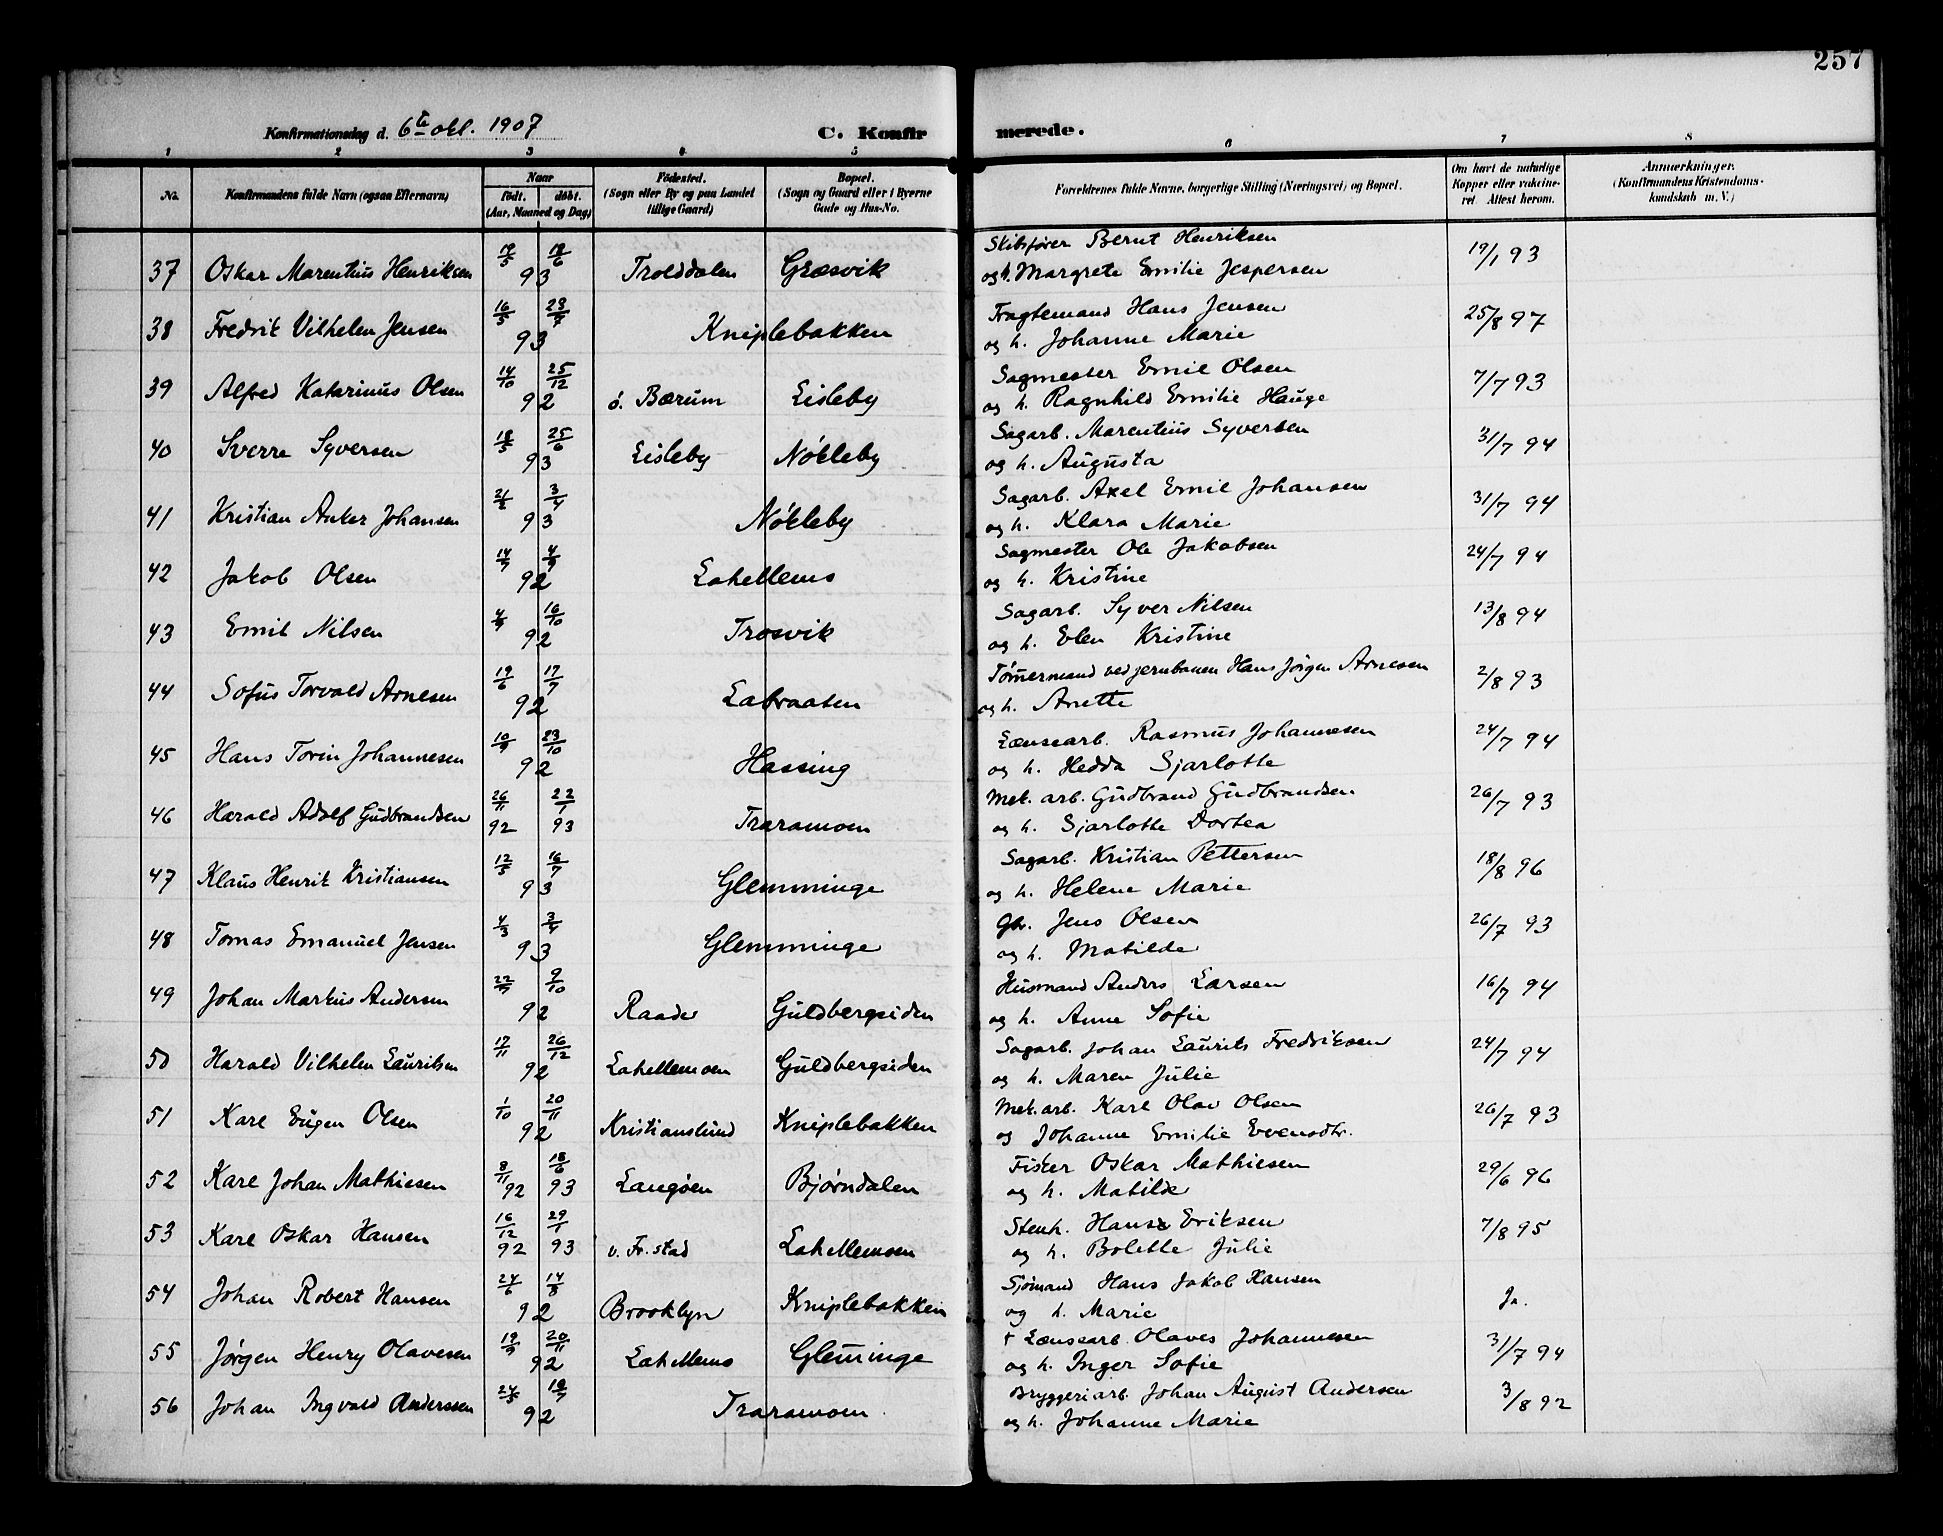 257
Konfirmationsdag d. 6te okt. 1907
C. Konfirmerede.
1 2 3 4 5 6 7 8
No. Konfirmandens fulde Navn (ogsaa Efternavn) Naar født. døbt. (Aar, Maaned og Dag) Fødested. (Sogn eller By og paa Landet tillige Gaard) Bopæl. (Sogn og Gaard eller i Byerne Gade og Hus-No. Forældrenes fulde Navne, borgerlige Stilling (Næringsvei) og Bopæl. Om havt de naturlige Kopper eller vaccineret. Attest herom. Anmærkninger. (Konfirmandens Kristendomskundskab m. V.)
37 Oskar Marentius Henriksen 19/5 18/6 93 Trolddalen Græsvik Skibsfører Bernt Henriksen
og h. Margrete Emilie Jespersen 19/1 93
38 Fredrik Vilhelm Jensen 16/5 23/7 93 Kniplebakken Fragtemand Hans Jensen
og h. Johanne Marie 25/8 97
39 Alfred Katarinus Olsen 14/10 25/12 92 ö. Bærum Lisleby Sagmester Emil Olsen
og h. Ragnhild Emilie Hauge 7/7 93
40 Sverre Syversen 18/5 25/6 93 Lisleby Nökleby Sagarb. Marentius Syversen
og h. Augusta 31/7 94
41 Kristian Anker Johansen 21/2 3/4 93 Nökleby Sagarb. Axel Emil Johansen
og h. Klara Marie 31/7 94
42 Jakob Olsen 14/7 4/9 92 Lahellems Sagmester Ole Jakobsen
og h. Kristine 24/7 94
43 Emil Nilsen 4/9 16/10 92 Trosvik Sagarb. Syver Nilsen
og h. Elen Kristine 13/8 94
44 Sofus Torvald Arnesen 19/6 17/7 92 Labraaten Tömermand ved jernbanen Hans Jörgen Arnesen
og h. Anette 2/8 93
45 Hans Torin Johannesen 10/9 23/10 92 Hassing Lænsearb. Rasmus Johannesen
og h. Hedda Sjarlotte 24/7 94
46 Harald Adolf Gudbrandsen 26/11 92 22/1 93 Traramoen Mek. arb. Gudbrand Gudbrandsen
og h. Sjarlotte Dortea 26/7 93
47 Klaus Henrik Kristiansen 12/5 16/7 93 Glemminge Sagarb. Kristian Pettersen
og h. Helene Marie 18/8 96
48 Tomas Emanuel Jensen 4/3 3/4 93 Glemminge Gbr. Jens Olsen
og h. Matilde 26/7 93
49 Johan Markus Andersen 22/7 9/10 92 Raade Guldbergsiden Husmand Anders Larsen
og h. Anne Sofie 16/7 94
50 Harald Vilhelm Lauritsen 17/11 26/12 92 Lahellemoen Guldbergsiden Sagarb. Johan Laurits Fredriksen
og h. Maren Julie 24/7 94
51 Karl Eugen Olsen 1/10 20/11 92 Kristianslund Kniplebakken Mek. arb. Karl Olav Olsen
og Johanne Emilie Evensdtr. 26/7 93
52 Karl Johan Mathiesen 8/11 92 18/6 93 Langöen Bjørndalen Fisker Oskar Mathiesen
og h. Matilde 29/6 96
53 Karl Oskar Hansen 16/12 92 29/1 93 v. Fr. stad Lahellemoen Stenh. Hans Eriksen
og h. Bolette Julie 7/8 95
54 Johan Robert Hansen 24/6 14/8 92 Brooklyn Kniplebakken Sjömand Hans Jakob Hansen
og h. Marie Ja.
55 Jørgen Henry Olavesen 19/9 20/11 92 Lahellems Glemminge + Lænsearb. Olaves Johannesen
og h. Inger Sofie 31/7 94
56 Johan Ingvald Anderssen 24/5 18/7 92 Traramoen Bryggeriarb. Johan August Andersen
og h. Johanne Marie 3/8 92